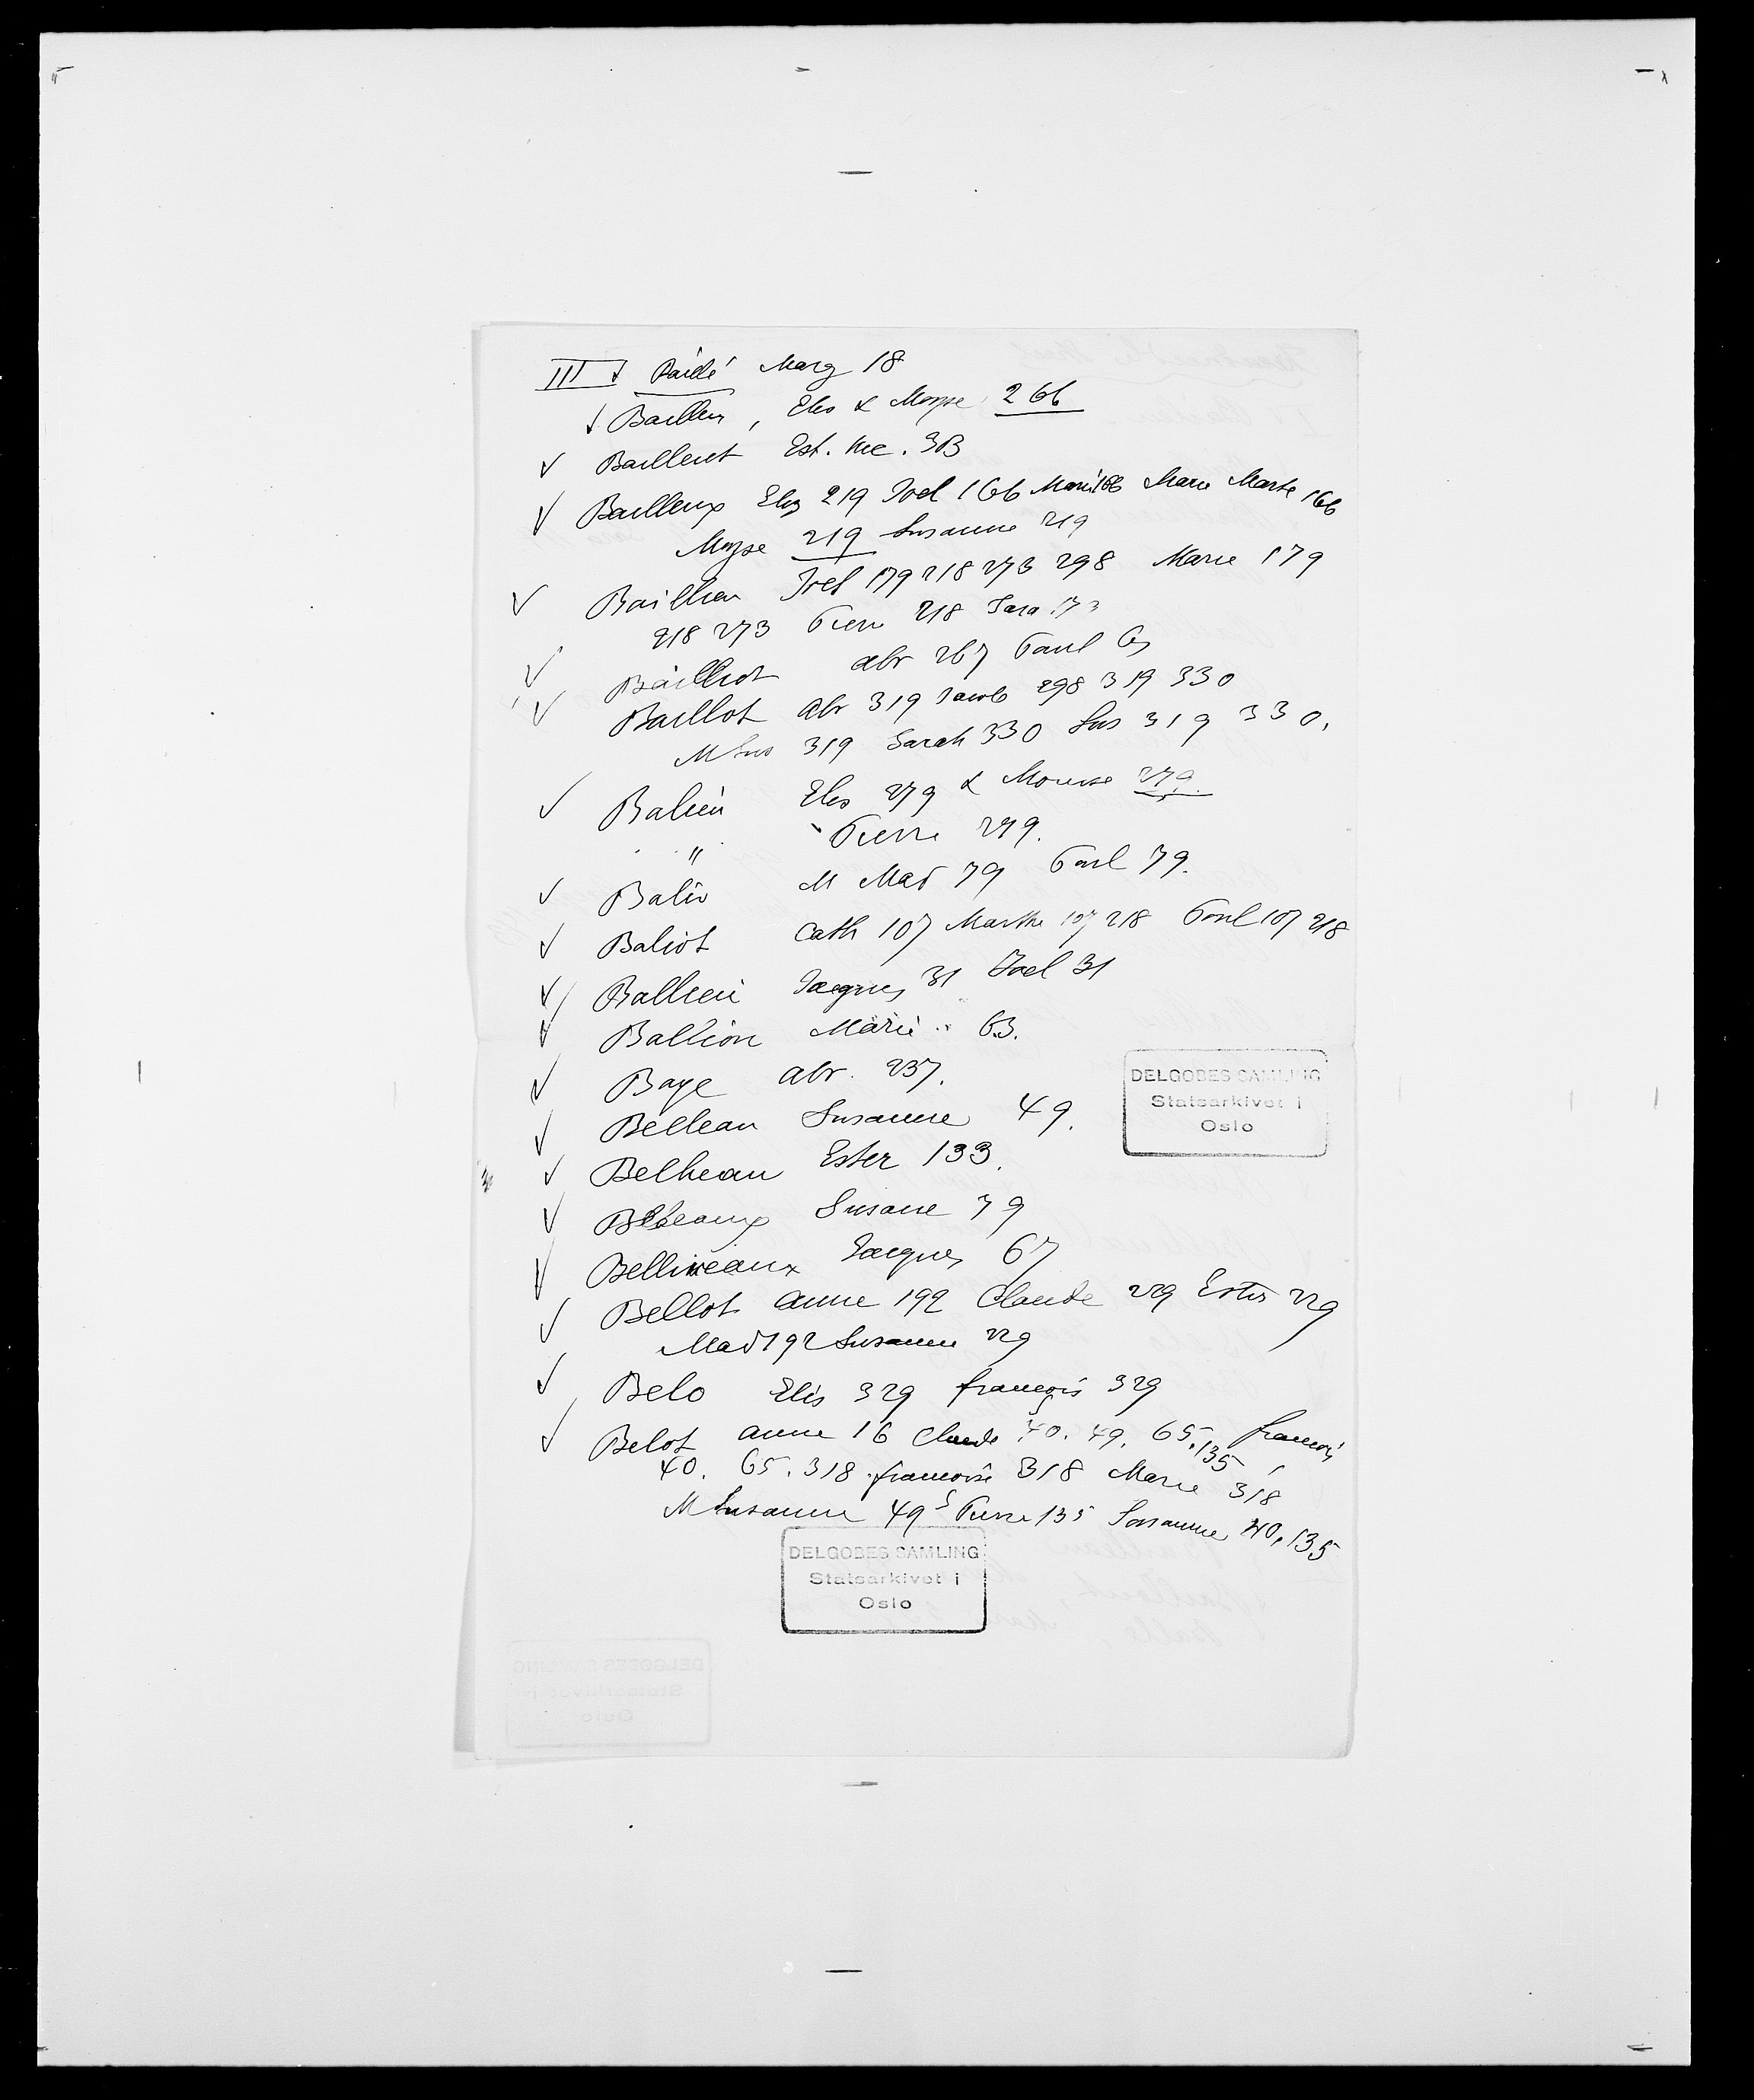 III ✓ Baillé Marg 18
✓ Bailleu, Elis & Moyse 266
✓ Bailleut Est. 33
✓ Bailleux Elis 219 Joel 166 Marie 166 Marie Marte 166
Moyse 219 Susanne 219
✓ Baillieu Joel 179 218 273 298 Marie 179
218 273 Pierre 218 Sara 173
✓ Bailliot Abr 267 Paul
✓ Baillot Abr 319 Jacob 298 319 330
M Sus 319 Sarah 330 Sus 319 330.
✓ Balieu Elis 279 & Mouise 279.
" Pierre 279.
✓ Balio M Mad 79 Paul 79.
✓ Baliot Cath 107 Marthe 107 218 Paul 107 218
✓ Ballieu Jacques 31 Joel 31
✓ Ballion Marie 63.
✓ Baye Abr. 237.
✓ Belleau Susanne 49.
✓ Belheau Ester 133.
✓ Susane 79
✓ Belliveaux Jacques 67
✓ Bellot Anne 192 Claude 229 Ester 229
Mad 192 Susanne 229
✓ Belo Elis 329 François 329
✓ Belot Anne 16 Claude 40. 49. 65. 135 François
40. 65. 318 Françoise 318 Marie 318
M Susanne 49 Pierre 135 Sousanne 40, 135
DELGOBES SAMLING
Statsarkivet i
Oslo
DELGOBES SAMLING
Statsarkivet i
Oslo